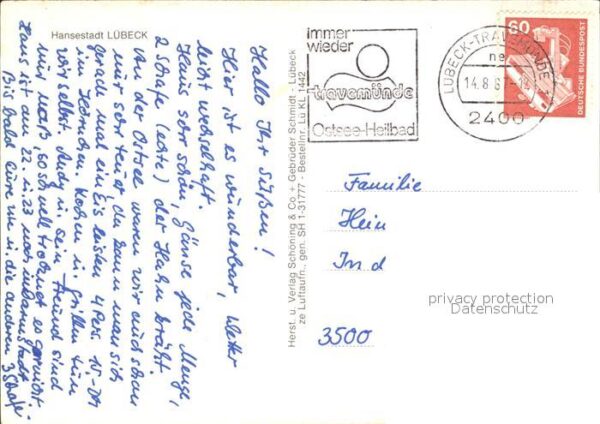 Hansestadt LÜBECK
Hallo Ihr Süßen!
Hier ist es wunderbar, Wetter
leicht wechselhaft.
Haus sehr schön, Gänse jede Menge,
2 Schafe (echte) der Hahn kräht.
An Ostsee waren wir und schon
mir sehr teuer da kann man sich
gerade mal ein Eis leisten 4 Pers. 15,-DM
im Hörnchen. Kochen u. grillen tun
wir selbst. Andy u. sein Freund sind
nur
so schnell trocknet es garnicht.
Haus ist am 22. u. 23 noch
Bis bald Eure u. die anderen 3 Schafe
Herst. u. Verlag Schöning & Co. + Gebrüder Schmidt - Lübeck
ze Luftaufn., gen. SH 1-31777 - Bestellnr. Lü KL 1442
immer
wieder
travemünde
Ostsee-Heilbad
LÜBECK-TRAVEMÜNDE
14.8.8
2400
60
DEUTSCHE BUNDESPOST
Familie
Hein
In d
3500
privacy protection
Datenschutz